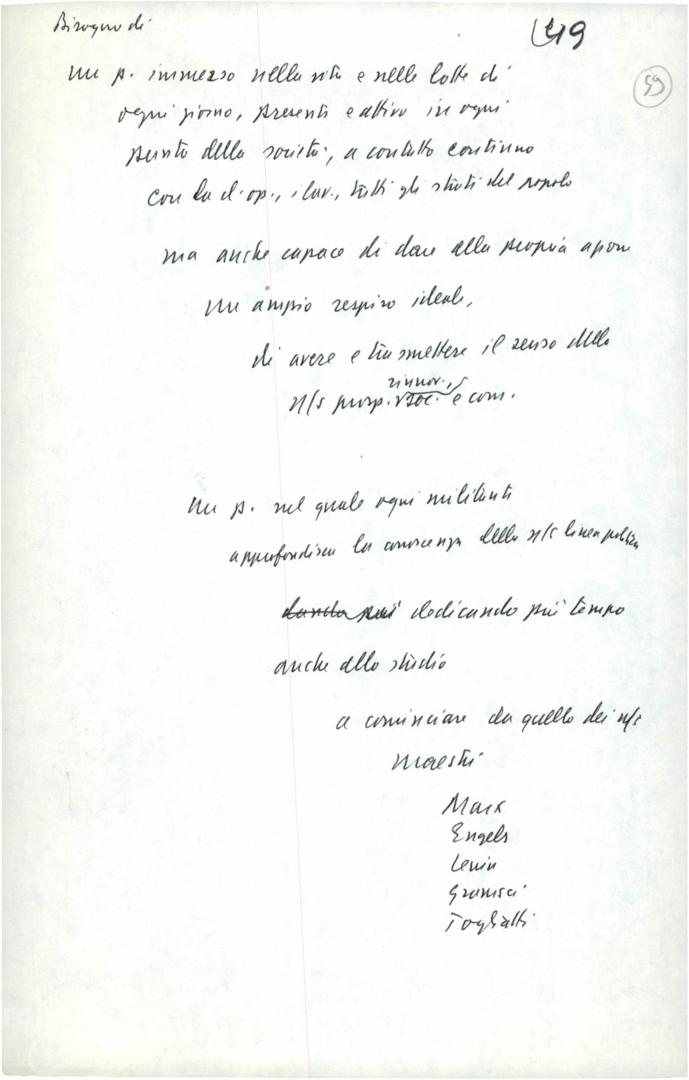 Bisogno di
49
59
un p. immerso nella vita e nelle lotte di
ogni giorno, presente e attivo in ogni
punto della società, a contatto continuo
con la cl. op., i lav., tutti gli strati del popolo
ma anche capace di dare alla propria azione
un ampio respiro ideale,
di avere e trasmettere il senso della
rinnov.,
n/s prosp. soc. e com.
un p. nel quale ogni militante
approfondisca la conoscenza della n/s linea politica
dando più dedicando più tempo
anche allo studio
a cominciare da quello dei n/s
maestri
Marx
Engels
Lenin
Gramsci
Togliatti